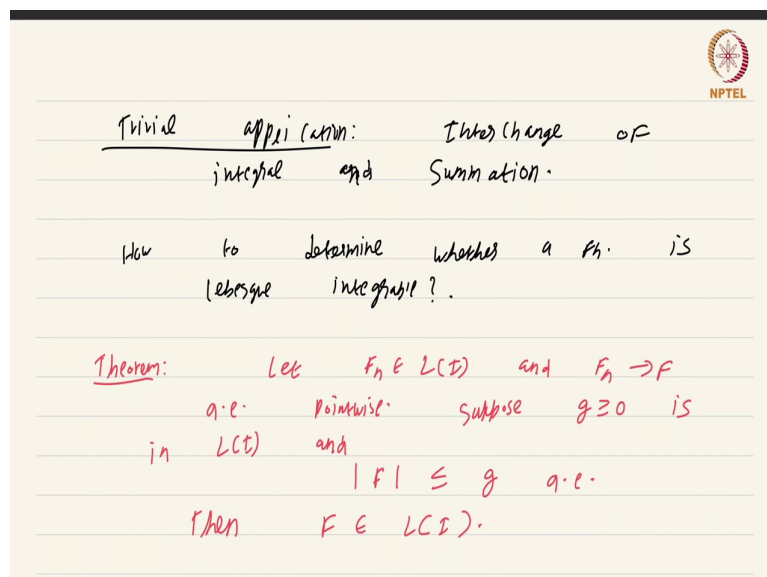 NPTEL
Trivial application: Interchange of
integral and Summation.
How to determine whether a fn. is
lebesgue integrable?.
Theorem: Let Fn ∈ L(I) and Fn → F
a.e. pointwise. Suppose g ≥ 0 is
in L(I) and
|F| ≤ g a.e.
Then F ∈ L(I).